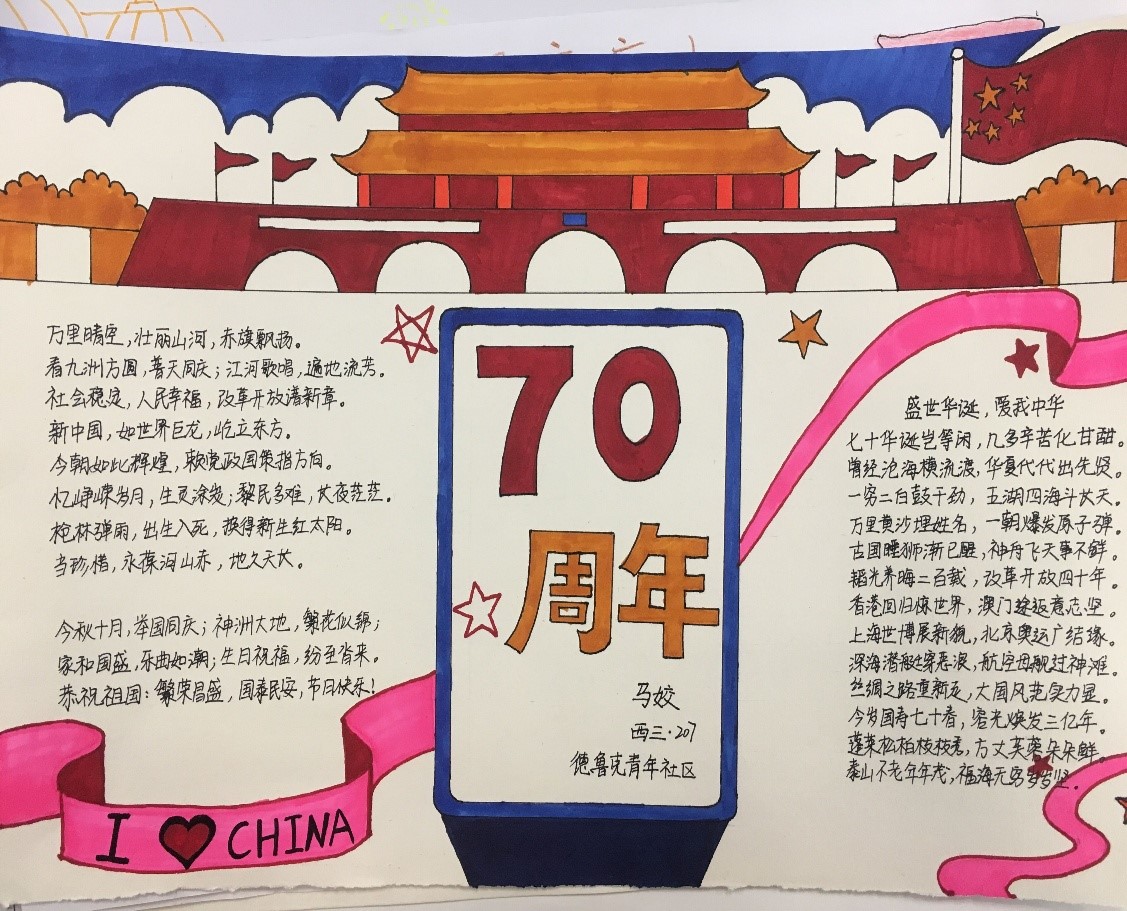 万里晴空，壮丽山河，赤旗飘扬。
看九洲方圆，普天同庆；江河歌唱，遍地流芳。
社会稳定，人民幸福，改革开放谱新章。
新中国，如世界巨龙，屹立东方。
今朝如此辉煌，赖党政国策指方向。
忆峥嵘岁月，生灵涂炭；黎民多难，长夜茫茫。
枪林弹雨，出生入死，换得新生红太阳。
当珍惜，永葆河山赤，地久天长。
今秋十月，举国同庆；神洲大地，繁花似锦；
家和国盛，乐曲如潮；生日祝福，纷至沓来。
恭祝祖国：繁荣昌盛，国泰民安，节日快乐！
I CHINA
70
周年
马姣
西三·207
德鲁克青年社区
盛世华诞，爱我中华
七十华诞岂等闲，几多辛苦化甘甜。
曾经沧海横流渡，华夏代代出先贤。
一穷二白鼓干劲，五湖四海斗长天。
万里黄沙埋姓名，一朝爆发原子弹。
古国睡狮渐已醒，神舟飞天事不鲜。
韬光养晦二百载，改革开放四十年。
香港回归惊世界，澳门途返意志坚。
上海世博展新貌，北京奥运广结缘。
深海潜艇穿恶浪，航空母舰过神滩。
丝绸之路重新走，大国风范实力显。
今岁国寿七十春，容光焕发三亿年。
蓬莱松柏枝枝秀，方丈芙蓉朵朵鲜。
泰山不老年年茂，福海无穷岁岁坚．